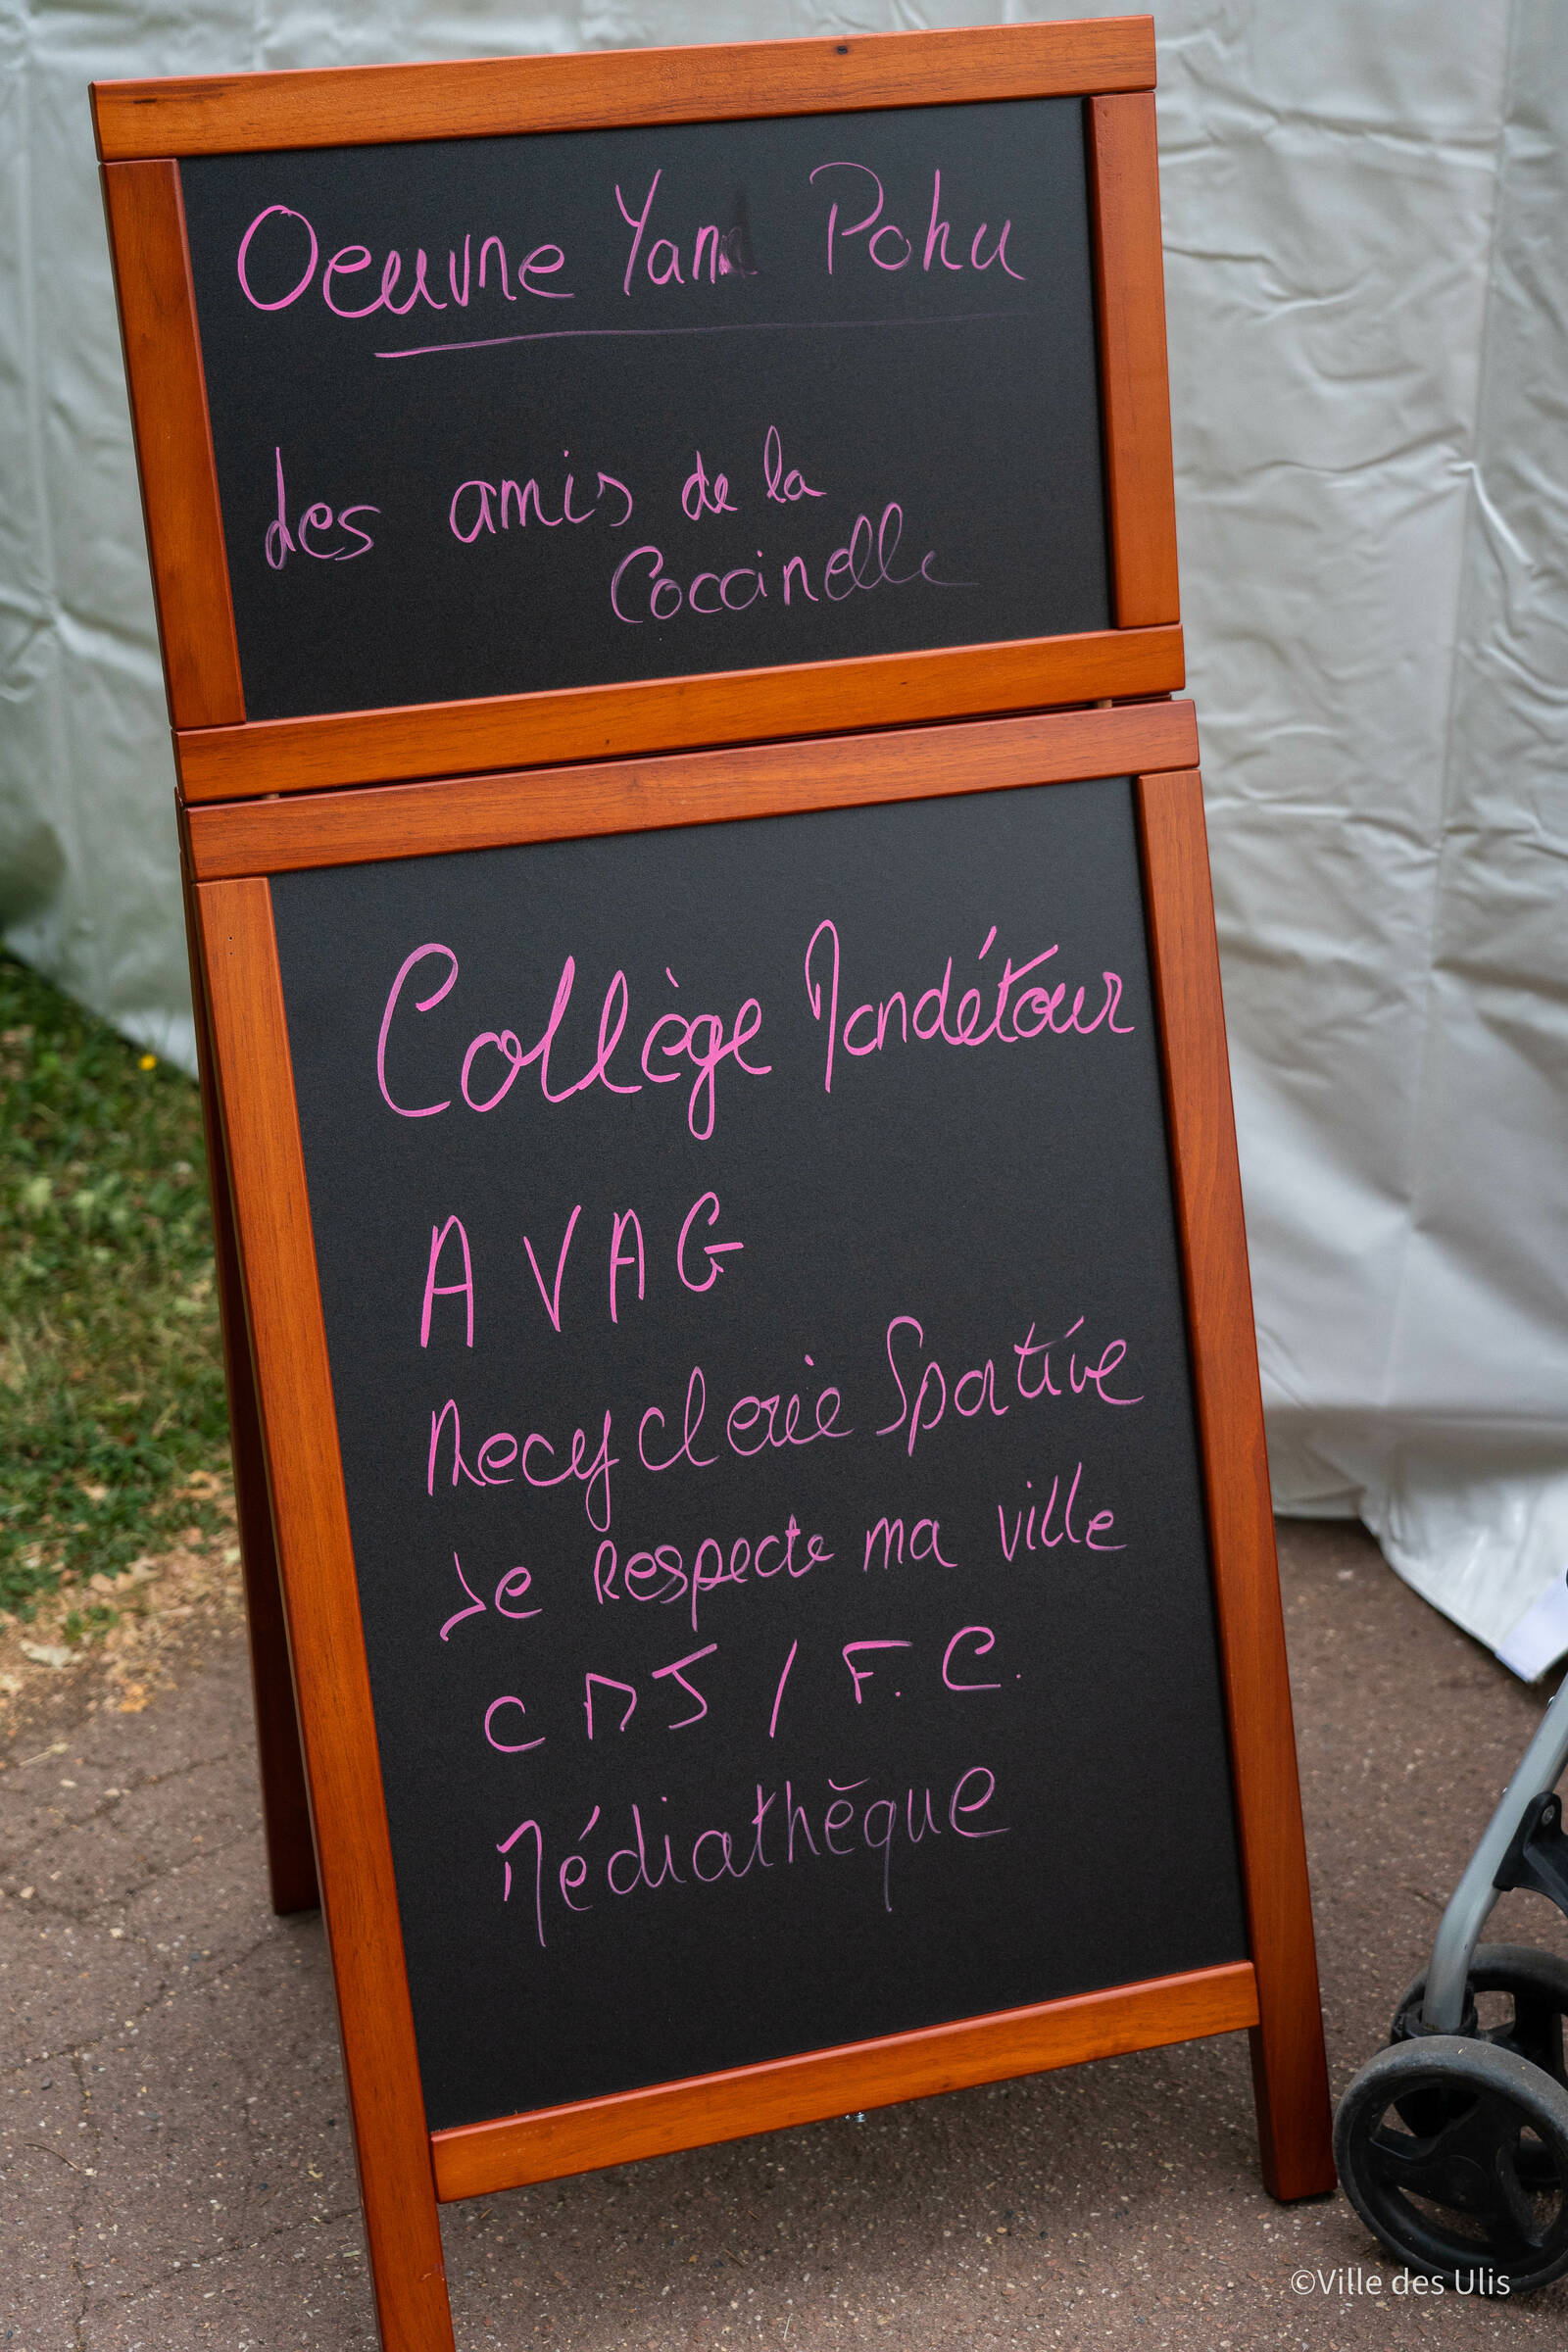 Oeuvre Yann Pohu
Les amis de la
Coccinelle
Collège Mondétour
AVAG
Recyclerie Sportive
Je Respecte ma ville
CDJ / F.C.
Médiathèque
©Ville des Ulis